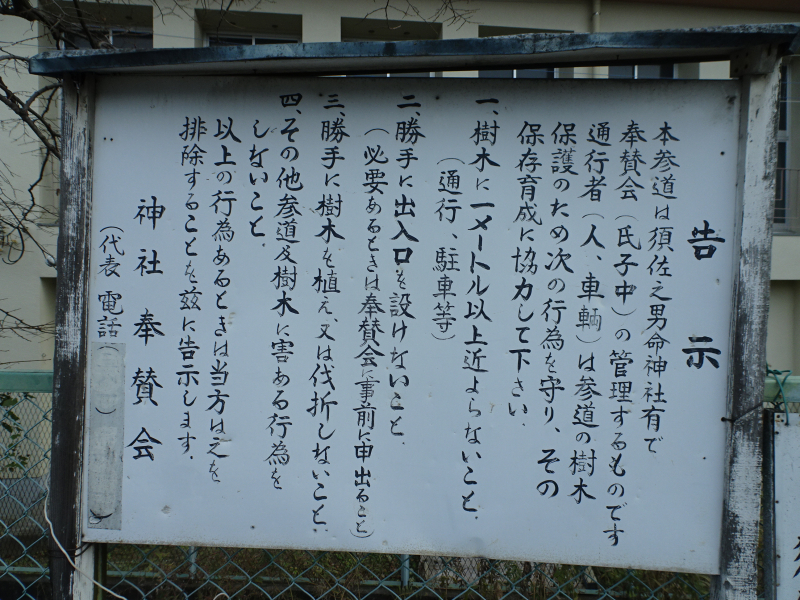 告示
本参道は須佐之男命神社有で
奉賛会（氏子中）の管理するものです
通行者（人、車輌）は参道の樹木
保護のため次の行為を守り、その
保存育成に協力して下さい.
一、樹木に一メートル以上近よらないこと.
（通行、駐車等）
二、勝手に出入口を設けないこと.
（必要あるときは奉賛会に事前に申出ること）
三、勝手に樹木を植え、又は伐折しないこと.
四、その他参道及樹木に害ある行為を
しないこと.
以上の行為あるときは当方は之を
排除することを茲に告示します.
神社奉賛会
（代表 電話 ）